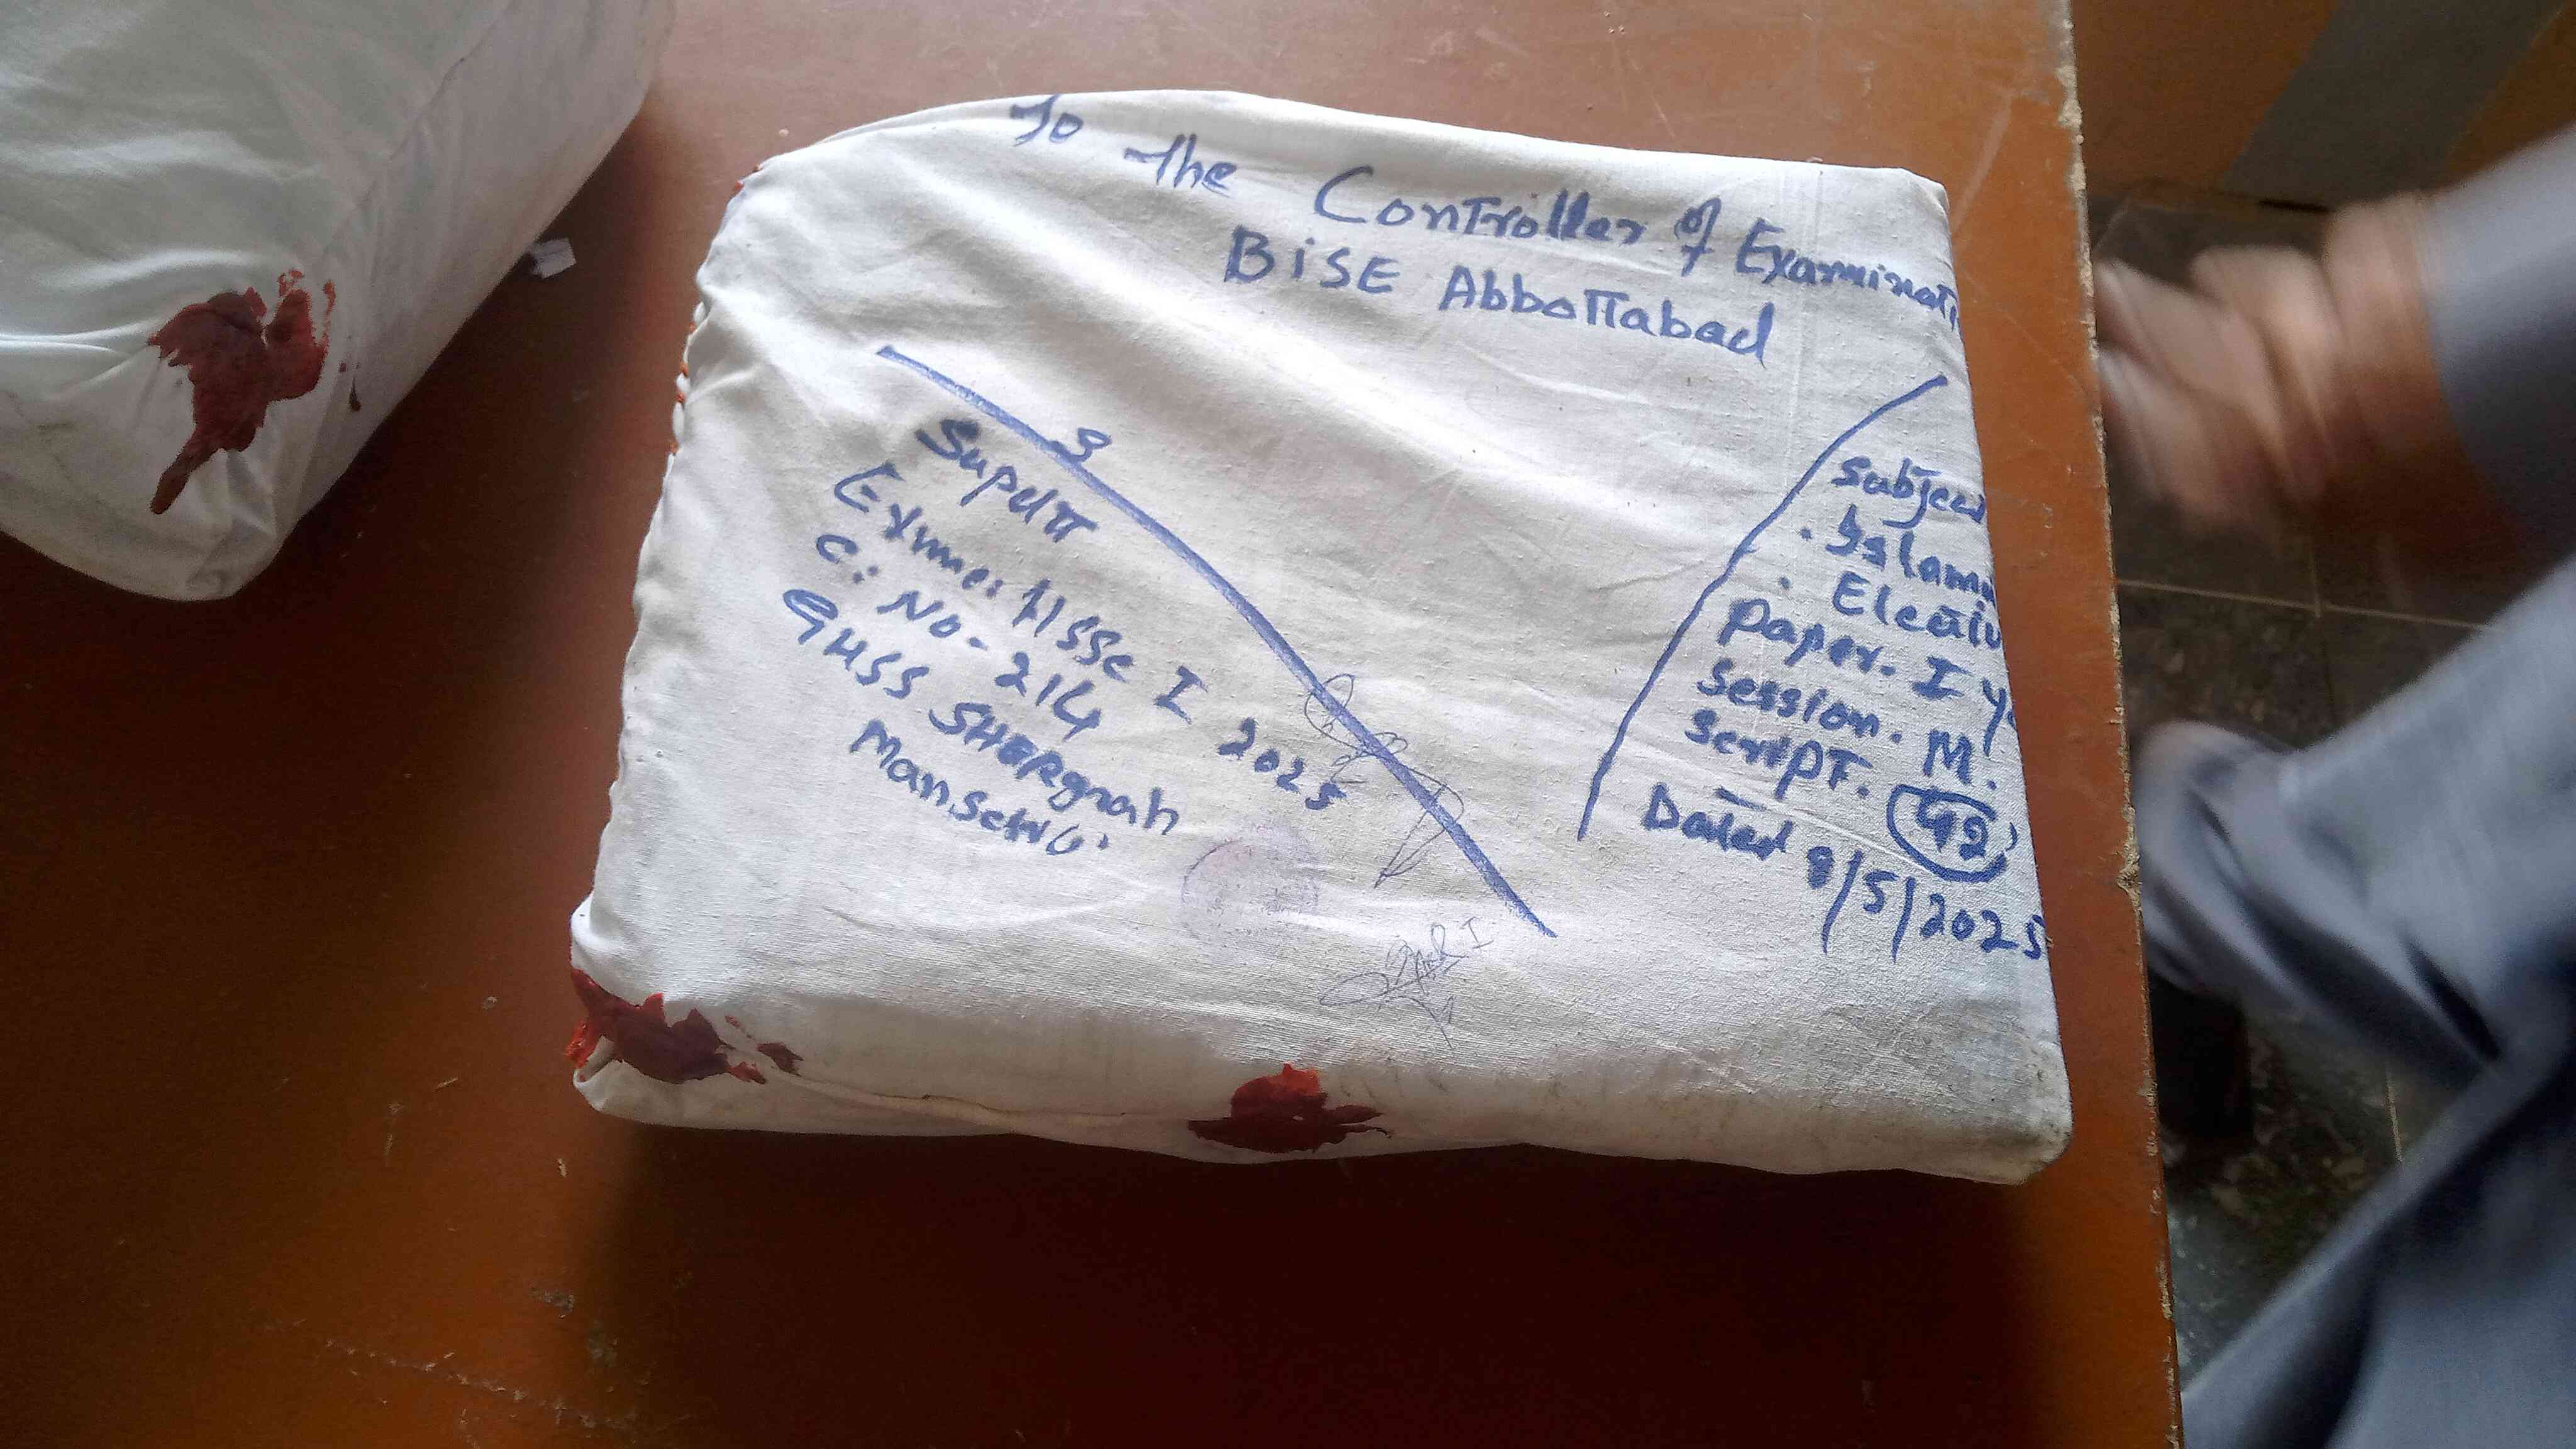 To
The Controller of Examinati
BiSE Abbottabad
Supdtt
Exme: HSSC I 2025
C: No- 214
GHSS SHERgrah
Mansehra
Subject
. Islami
. Elective
Paper. I
Session. M.
Script. 92
Dated 8/5/2025